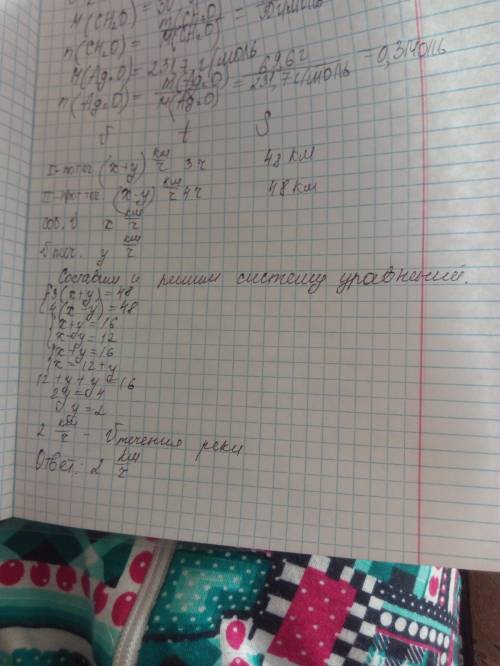 M(CH₂O) = 30
n(CH₂O) = m(CH₂O) / M(CH₂O) =
M(Ag₂O) = 231,7 г/моль
n(Ag₂O) = m(Ag₂O) / M(Ag₂O) = 69,6 г / 231,7 г/моль = 0,3 моль
υ t S
I - по теч. (x+y) км/ч 3 ч 48 км
II - пр. теч. (x-y) км/ч 4 ч 48 км
соб. υ x км/ч
υ теч. y км/ч
Составим и решим систему уравнений.
{3(x+y)=48
{4(x-y)=48
{x+y=16
{x-y=12
{x+y=16
{x=12+y
12+y+y=16
2y=4
y=2
2 км/ч - υ течения реки
Ответ: 2 км/ч